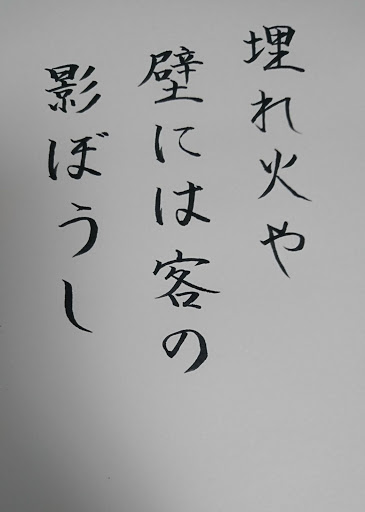 埋れ火や
壁には客の
影ぼうし